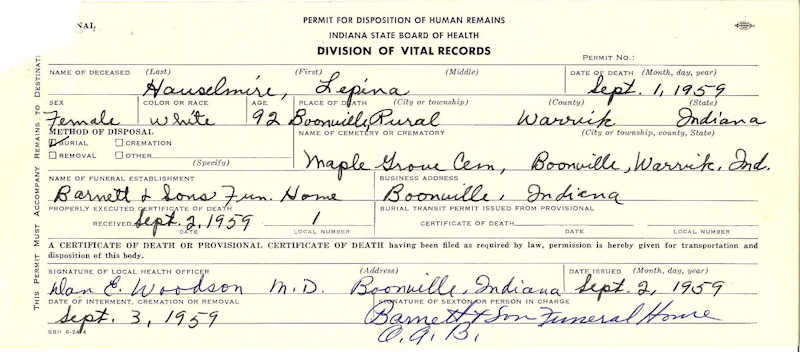 NAL
PERMIT FOR DISPOSITION OF HUMAN REMAINS
INDIANA STATE BOARD OF HEALTH
DIVISION OF VITAL RECORDS
PERMIT NO.:
THIS PERMIT MUST ACCOMPANY REMAINS TO DESTINATI
NAME OF DECEASED (Last) (First) (Middle) DATE OF DEATH (Month, day, year)
Hauselmire, Lepina Sept. 1, 1959
SEX COLOR OR RACE AGE PLACE OF DEATH (City or township) (County) (State)
Female White 92 Boonville, Rural Warrick Indiana
METHOD OF DISPOSAL NAME OF CEMETERY OR CREMATORY (City or township, county, State)
BURIAL CREMATION
REMOVAL OTHER (Specify)
Maple Grove Cem, Boonville, Warrick, Ind.
NAME OF FUNERAL ESTABLISHMENT BUSINESS ADDRESS
Barnett & Sons Fun. Home Boonville, Indiana
PROPERLY EXECUTED CERTIFICATE OF DEATH BURIAL TRANSIT PERMIT ISSUED FROM PROVISIONAL
RECEIVED Sept. 2, 1959 1 CERTIFICATE OF DEATH
DATE LOCAL NUMBER DATE LOCAL NUMBER
A CERTIFICATE OF DEATH OR PROVISIONAL CERTIFICATE OF DEATH having been filed as required by law, permission is hereby given for transportation and
disposition of this body.
SIGNATURE OF LOCAL HEALTH OFFICER (Address) DATE ISSUED (Month, day, year)
Dan E. Woodson M.D. Boonville, Indiana Sept. 2, 1959
DATE OF INTERMENT, CREMATION OR REMOVAL SIGNATURE OF SEXTON OR PERSON IN CHARGE
Sept. 3, 1959 Barnett & Son Funeral Home
O.G.B.
SBH 6-24-4